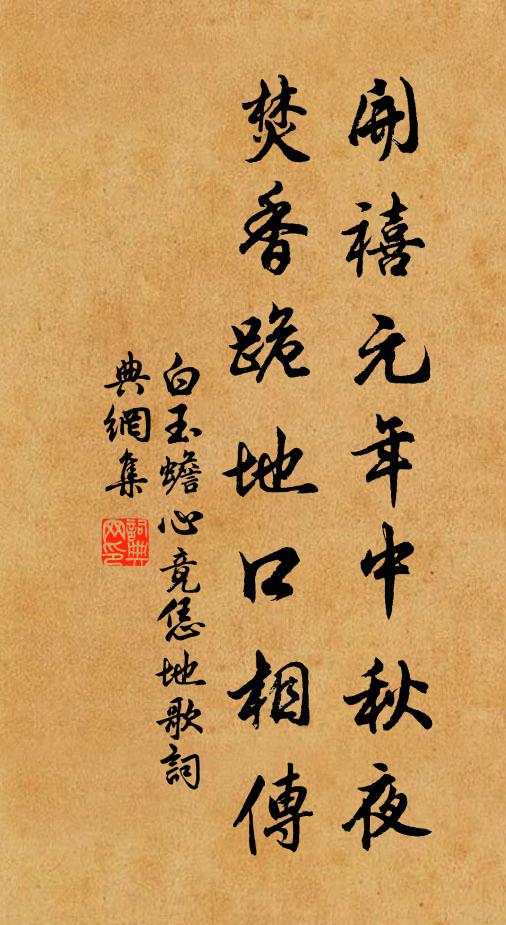 開禧元年中秋夜
焚香跪地口相傳
白玉蟾心竟恁地歌詞
典網集
詞典网印